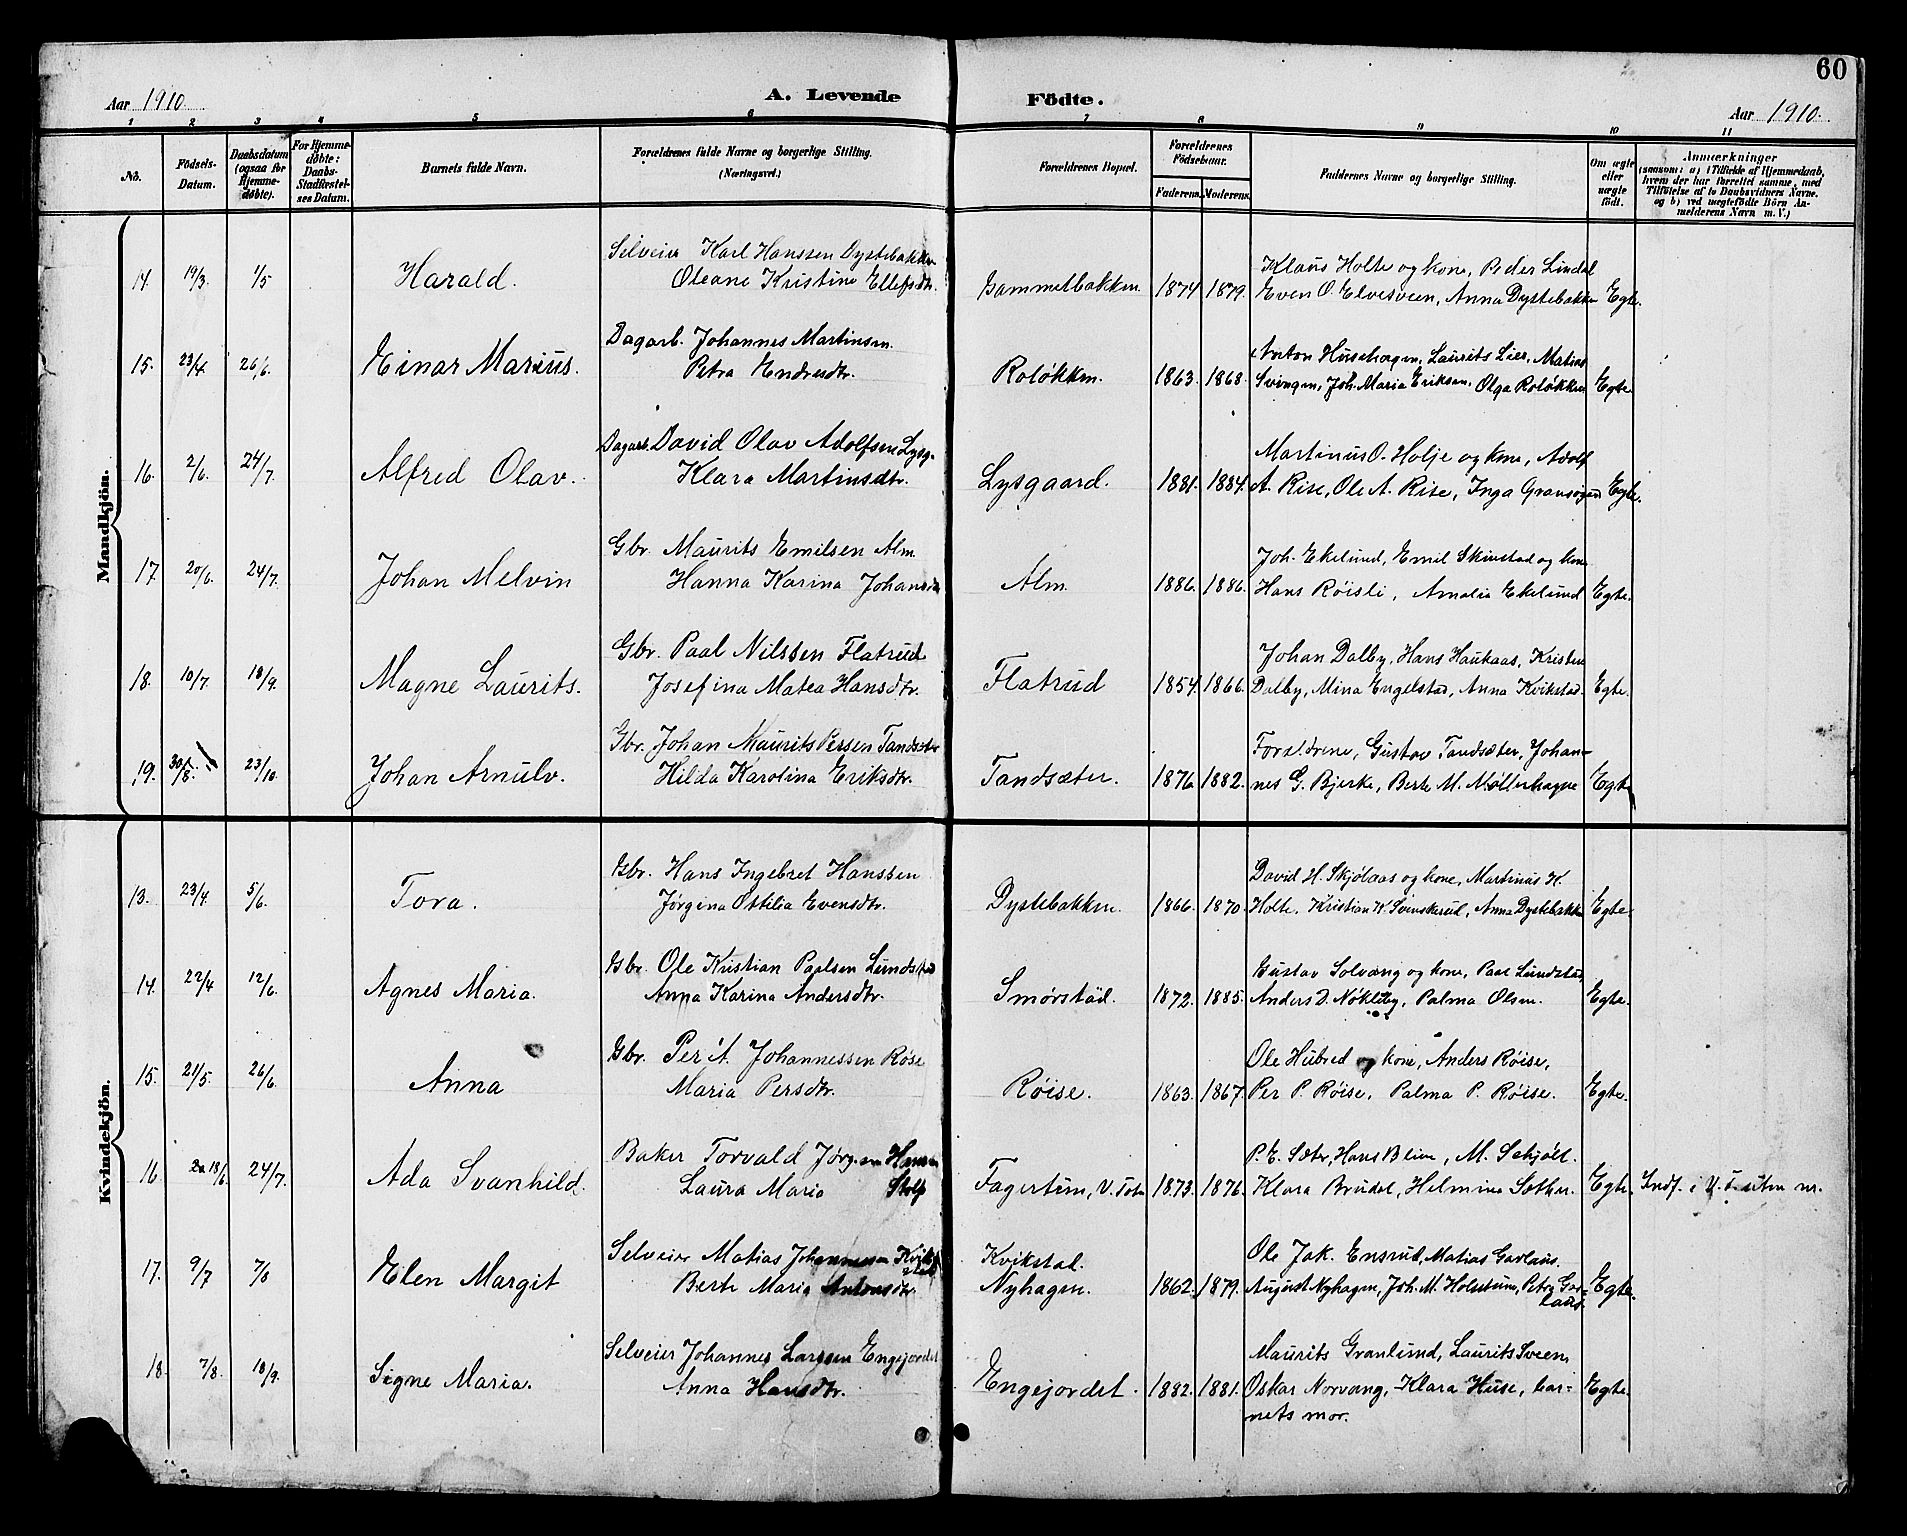 60
Aar 1910. A. Levende Födte. Aar 1910.
1 2 3 4 5 6 7 8 9 10 11
No. Födsels-Datum. Daabsdatum (ogsaa for Hjemmedøbte). For Hjemmedøbte: Daabs-Stadfæstelses Datum. Barnets fulde Navn. Forældrenes fulde Navne og borgerlige Stilling. (Næringsvei.) Forældrenes Bopæl. Forældrenes Födselsaar. Faderens. Moderens. Faddernes Navne og borgerlige Stilling. Om ægte eller uægte født. Anmærkninger (saasom: a) i Tilfælde af Hjemmedaab, hvem der har forrettet samme, med Tilføielse af to Daabsvidners Navne. og b) ved uægtefödte Börn Anmelderens Navn m. V.)
Mandkjön.
Selveier Karl Hanssen Dystebakken Klaus Holte og kone, Peder Lindal
14. 19/3. 1/5 Harald. Oleane Kristine Ellefsdtr. Gammelbakken 1874 1879. Even O. Elvesveen, Anna Dystebakken Egte.
Dagarb. Johannes Martinsen Anton Husehagen, Laurits Lier, Matias
15. 23/4. 26/6. Einar Marius. Petra Endresdtr. Roløkken. 1863. 1868. Svingen, Joh. Maria Eriksen, Olga Roløkken Egte.
Dagarb. David Olav Adolfsen Lysg. Martinus O. Holje og kone, Adolf
16. 2/6. 24/7. Alfred Olav. Klara Martinsdtr. Lysgaard. 1881. 1884. A. Rise, Ole A. Rise, Inga Egte.
Gbr. Maurits Emilsen Alm Joh. Ekelund, Emil Skinstad og kone
17. 20/6. 24/7. Johan Melvin Hanna Karina Alm. 1886. 1886. Hans Røisli, Amalia Ekelund Egte.
Gbr. Paal Nilssen Flatrud Johan Dalby, Hans Haukaas, Kristen
18. 10/7. 18/9. Magne Laurits. Josefina Matea Hansdtr. Flatrud 1854. 1866. Dalby, Mina Engelstad, Anna Kvikstad. Egte.
Gbr. Johan Maurits Persen Tandsæter Forældrene, Gustav Tandsæter, Johan-
19. 30/8. 23/10. Johan Arnulv. Hilda Karolina Eriksdtr. Tandsæter. 1876. 1882. nes G. Bjerke, Berte M. Møllerhagne Egte
Kvindekjön.
Gbr. Hans Ingebret Hanssen David H. Skjølaas og kone, Martinus K.
13. 23/4. 5/6. Tora. Jørgina Ottilia Evensdtr. Dystebakken. 1866. 1870. Holte, Kristian K. Svenskerud, Anna Dystebakken Egte.
Gbr. Ole Kristian Paalsen Lundstad Gustav Solvang og kone, Paal Lundstad,
14. 22/4 12/6. Agnes Maria. Anna Karina Andersdtr. Smørstad. 1872. 1885. Anders D. Nøkleby, Palma Olsen. Egte.
Gbr. Per A. Johannessen Røise Ole Hubred og kone, Anders Røise,
15. 21/5. 26/6. Anna Maria Persdtr. Røise. 1863. 1867. Per P. Røise, Palma P. Røise. Egte.
Baker Torvald Jørgen Hansen P. E. Sæter, Hans Blien, M. Schjøll.
16. 18/6. 24/7. Ada Svanhild. Laura Maria Stolp Fagertun, V. Toten 1873. 1876. Klara Brudal, Helmine Sæther. Egte. Indf. i V. T. uten nr.
Selveier Matias Johannessen Kvikstad Kvikstal. Ole Jak. Ensrud, Matias Garlaus.
17. 9/7 7/8 Elen Margit Berte Maria Antonsdtr. Nyhagen. 1862. 1879. August Nyhagen, Joh. M. Holstuen, Petra Gar- Egte.
laus.
Selveier Johannes Larssen Engejordet Maurits Granlund, Laurits Sveen,
18. 7/8. 18/9. Signe Maria. Anna Hansdtr. Engejordet. 1882. 1881. Oskar Norvang, Klara Huse, bar- Egte.
nets mor.